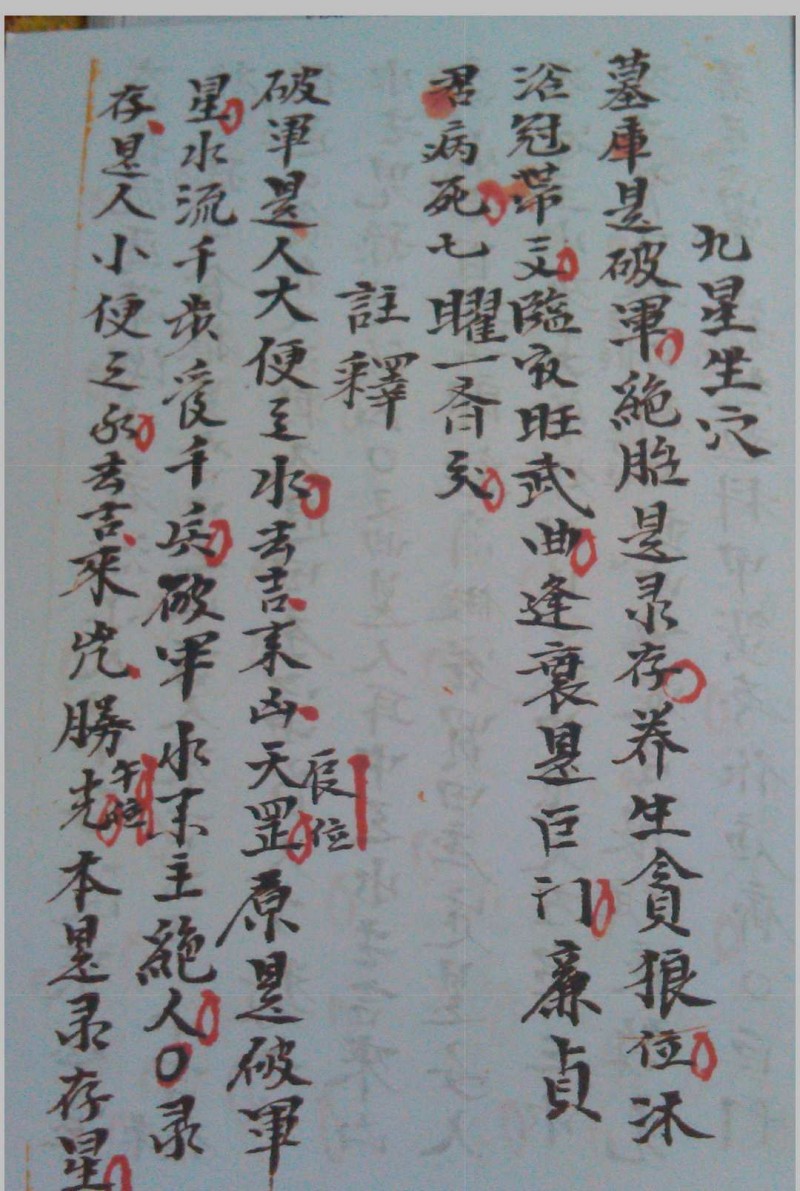 九星坐穴
墓庫是破軍絕胎是录存养生貪狼位沐
浴冠帯文臨官旺武曲逢衰是巨门廉貞
君病死七曜一斉
註釋
破軍是人大便之水去吉來凶天罡辰位原是破軍
星水流千步受千兵破軍水來主絕人〇录
存是人小便之水去吉來凶勝光午位本是录存星